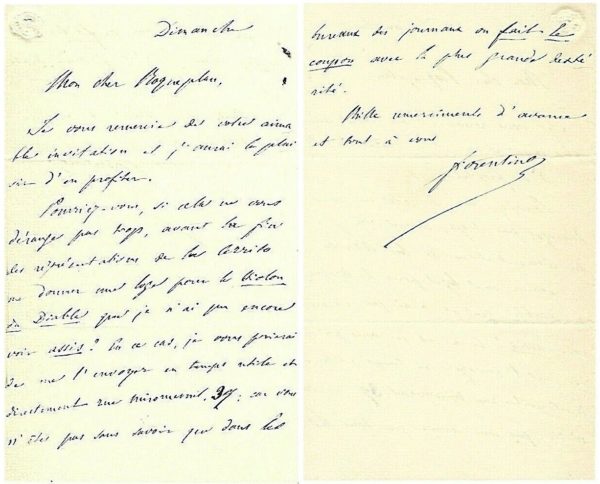 Dimanche
Mon cher Roqueplan,
Je vous remercie de votre aima
ble invitation et j'aurai le plai
sir d'en profiter.
Pourriez-vous, si cela ne vous
dérange pas trop, avant la fin
des représentations de la Cerrito
me donner une loge pour le Violon
du Diable que je n'ai pu encore
voir assis? En ce cas, je vous prierai
de me l'envoyer en temps utile et
directement rue Miromesnil, 37; car vous
n'êtes pas sans savoir que dans les
bureaux des journaux on fait le
coupon avec la plus grande dexté
rité.
Mille remerciments d'avance
et tout à vous
Fiorentino